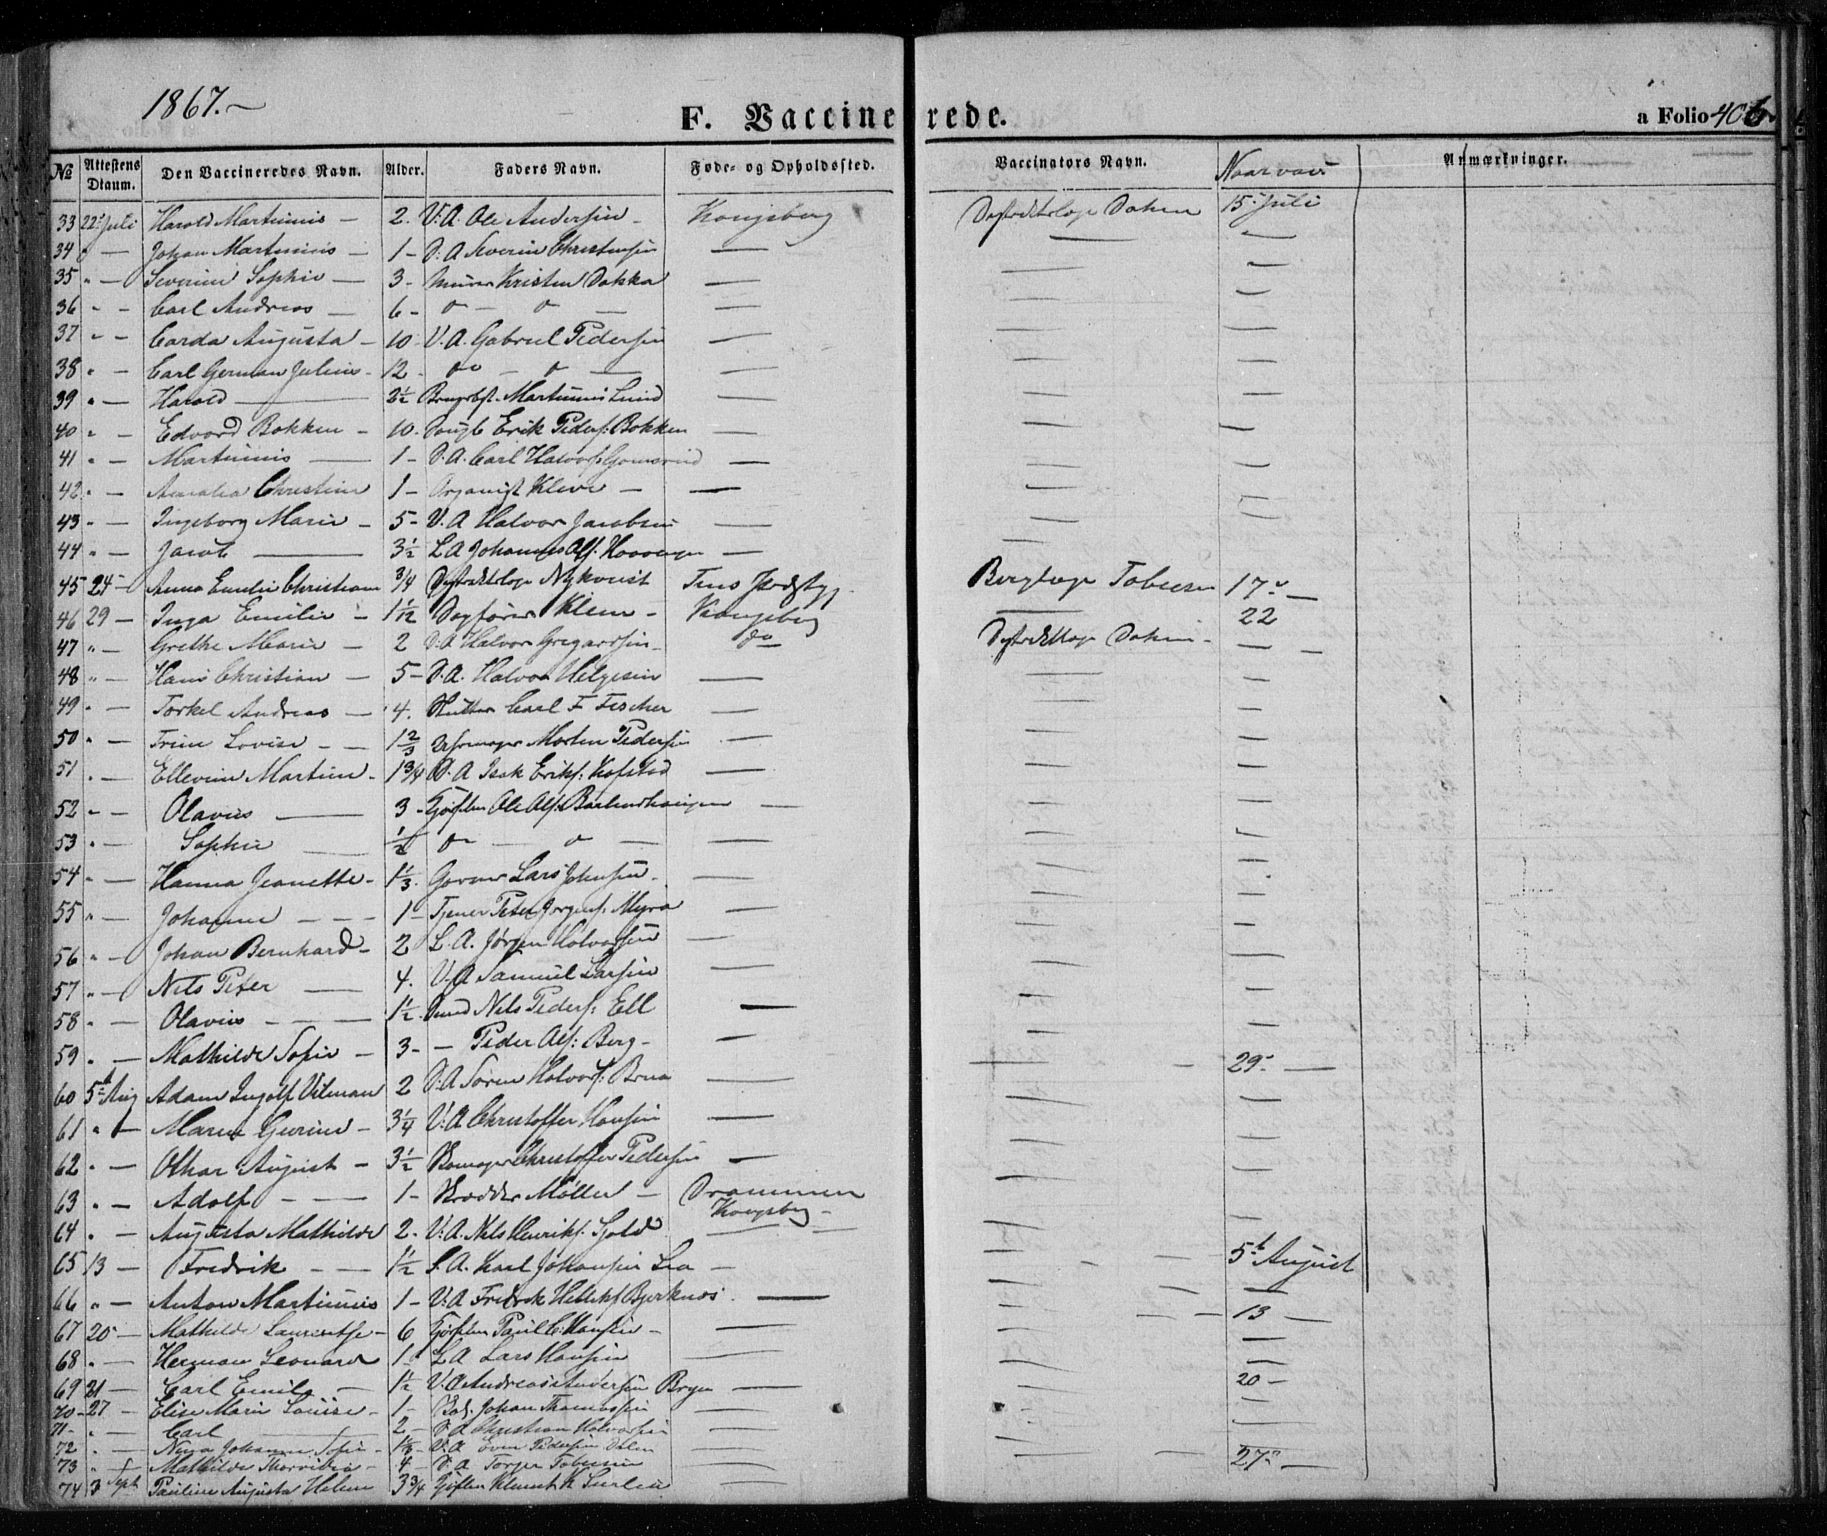 1867.—
F. Vaccinerede.
a Folio 406
№ Attestens Dtaum. Den Vaccineredes Navn. Alder. Faders Navn. Føde- og Opholdssted. Vaccinators Navn. Naar vacc Anmærkninger.
33 22 Juli Harald Martinius — 2. V. A. Ole Andersen — Kongsberg 15 Juli
34 " — Johan Martinius — 1 — V. A. Severin Christensen — — —
35 " — Severine Sophie — 3 — Murer Kristen Dokka — — —
36 " — Carl Andreas — 6 — o — o — — — —
37 " — Carda Augusta — 10 V. A. Gabriel Pedersen — — —
38 " — Carl German Julius — 12 — do — o — — — —
39 " — Harald — 2½ Martinius Lund — — —
40 " — Edvard Bakken — 10. Erik Peders: Bakken — — —
41 " — Martinius — 1 — V. A. Carl Halvors: — — —
42 " — Amalia Christine 1 — Organist Kleve — — — —
43 " — Ingeborg Marie — 5 — V. A Halvor Jacobsen — — —
44 " — Jacob — 3½ L A Johannes Alf. — — —
45 24 — Anna Emilie Christiane ¾ Distriktslæge Nykvist Berglæge Tobiesen 17 —
46 29 — Inga Emilie — 1 1/12 Klem — Kongsberg — 22
47 " — Grethe Marie — 2 V. A Halvor Gregersen — do — —
48 " — Hans Christian — 5 — V. A. Halvor Helgesen — — —
49 " — Torkel Andreas — 4. Carl F Fischer — — —
50 " — Trine Lovise — — 1⅔ Morten Pedersen — — —
51 " — Ellevine Martine — 1¾ V. A Isak Eriks: Kofstad — — —
52 " — Olavus — 3 — Ole Ols. — — —
53 " — Sophie — ½ o — o — — — —
54 " — Hanna Jeanette — 1⅓ Garver Lars Johnsen — — —
55 " — Johanne — — — 1 — Tjener Peter Jørgens: Myra — — —
56 " — Johan Bernhard — 2 L. A. Jørgen Halvorsen — — —
57 " — Nils Peter — 4. V. A Samuel Larsen — — —
58 " — Olavus — — — 1½ Nils Peders: Ell — — —
59 " — Mathilde Sofie — 3 — — Peder Ols: Berg — — — 29 —
60 5t Aug Adam Ingolf Vilman 2 V. A Søren Halvors: Brua — — —
61 " — Maren Gurine — 3¼ V. A Christoffer Hansen — — —
62 " — Othar August — 3½ Skomager Christoffer Pedersen — — —
63 " — Adolf — — — 1 — Skrædder Møller — Drammen — —
Kongsberg —
64 " — Augusta Mathilde 2. V. A. Nils Henriks: — — —
65 13 — Fredrik — — 1½ S. A. Karl Johansen Lia — — 5t August
66 " — Anton Martinius 1 — V. A Fredrik Helliks: Bjerknæs. — — —
67 20 — Mathilde Lauritse — 6 Paul C. Hansen — — — 13 —
68 " — Herman Leonard 1 L A Lars Hansen — — —
69 21 — Carl Emil — 1½ V. A Andreas Andersen Bryn — — 20 —
70 — 27 — Elise Marie Louise — 1 — Johan Thomassen — — —
71 — " — Carl — 2 — V. A Christian Halvorsen — — —
72 " — Johanne Sofie — V. A Even Pedersen Dalen — — —
73 " — Mathilde — 4 — V. A Torger Tobiesen — — 27 —
74 3 Sept Pauline Augusta Helene 3¾ Klemet K — —